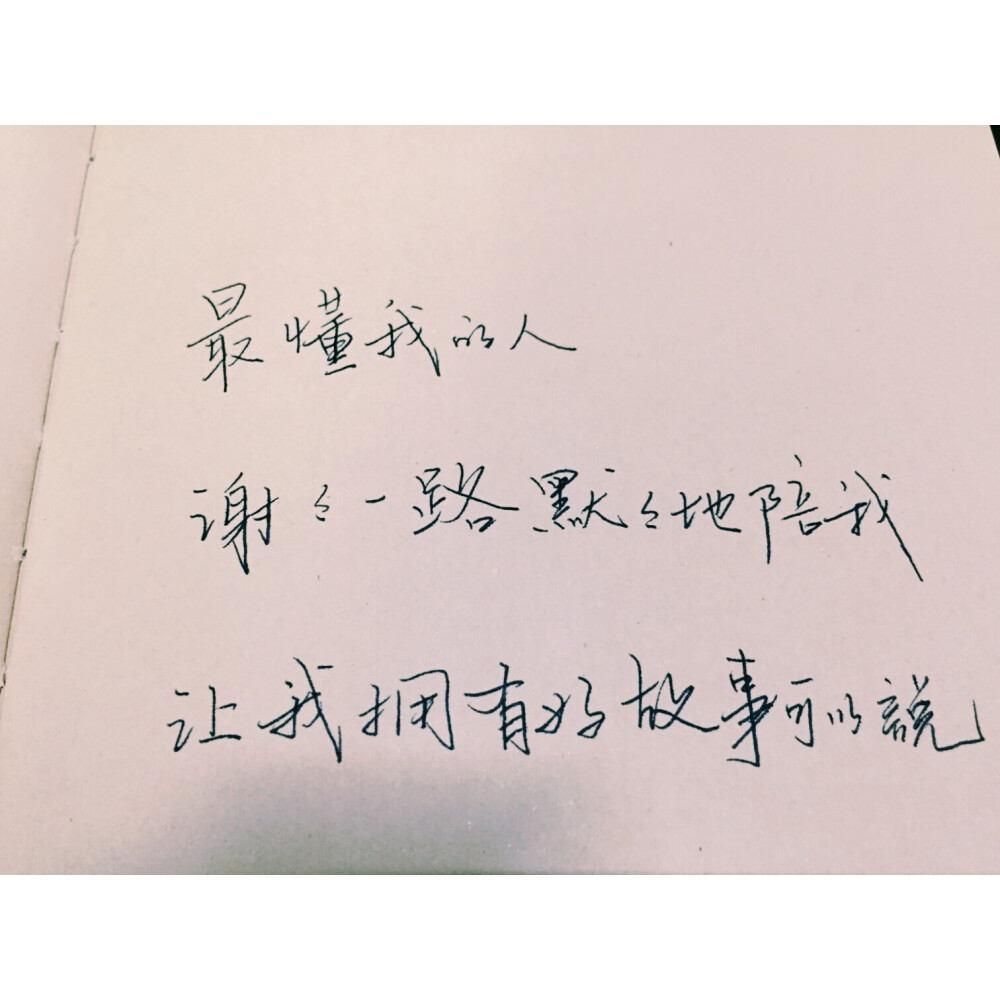 最懂我的人
谢々一路默々地陪我
让我拥有好故事可以説